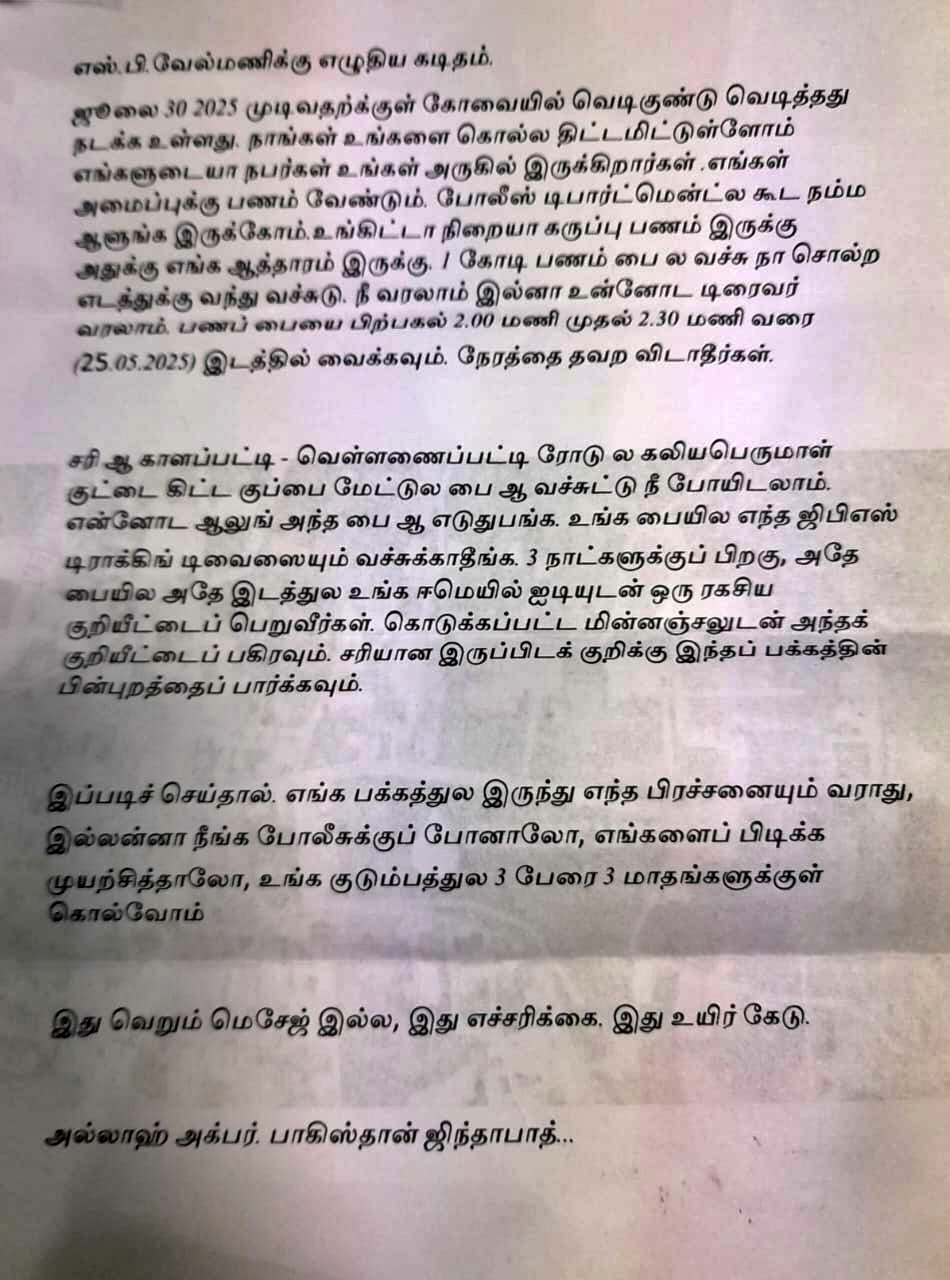 எஸ்.பி.வேல்மணிக்கு எழுதிய கடிதம்.
ஜூலை 30 2025 முடிவதற்க்குள் கோவையில் வெடிகுண்டு வெடித்தது
நடக்க உள்ளது. நாங்கள் உங்களை கொல்ல திட்டமிட்டுள்ளோம்
எங்களுடையா நபர்கள் உங்கள் அருகில் இருக்கிறார்கள் .எங்கள்
அமைப்புக்கு பணம் வேண்டும். போலீஸ் டிபார்ட்மென்ட்ல கூட நம்ம
ஆளுங்க இருக்கோம்.உங்கிட்டா நிறையா கருப்பு பணம் இருக்கு
அதுக்கு எங்க ஆத்தாரம் இருக்கு. 1 கோடி பணம் பை ல வச்சு நா சொல்ற
எடத்துக்கு வந்து வச்சுடு. நீ வரலாம் இல்னா உன்னோட டிரைவர்
வரலாம். பணப் பையை பிற்பகல் 2.00 மணி முதல் 2.30 மணி வரை
(25.05.2025) இடத்தில் வைக்கவும். நேரத்தை தவற விடாதீர்கள்.
சரி ஆ காளப்பட்டி - வெள்ளணைப்பட்டி ரோடு ல கலியபெருமாள்
குட்டை கிட்ட குப்பை மேட்டுல பை ஆ வச்சுட்டு நீ போயிடலாம்.
என்னோட ஆலுங் அந்த பை ஆ எடுதுபங்க. உங்க பையில எந்த ஜிபிஎஸ்
டிராக்கிங் டிவைஸையும் வச்சுக்காதீங்க. 3 நாட்களுக்குப் பிறகு, அதே
பையில அதே இடத்துல உங்க ஈமெயில் ஐடியுடன் ஒரு ரகசிய
குறியீட்டைப் பெறுவீர்கள். கொடுக்கப்பட்ட மின்னஞ்சலுடன் அந்தக்
குறியீட்டைப் பகிரவும். சரியான இருப்பிடக் குறிக்கு இந்தப் பக்கத்தின்
பின்புறத்தைப் பார்க்கவும்.
இப்படிச் செய்தால். எங்க பக்கத்துல இருந்து எந்த பிரச்சனையும் வராது,
இல்லன்னா நீங்க போலீசுக்குப் போனாலோ, எங்களைப் பிடிக்க
முயற்சித்தாலோ, உங்க குடும்பத்துல 3 பேரை 3 மாதங்களுக்குள்
கொல்வோம்
இது வெறும் மெசேஜ் இல்ல, இது எச்சரிக்கை. இது உயிர் கேடு.
அல்லாஹ் அக்பர். பாகிஸ்தான் ஜிந்தாபாத்...